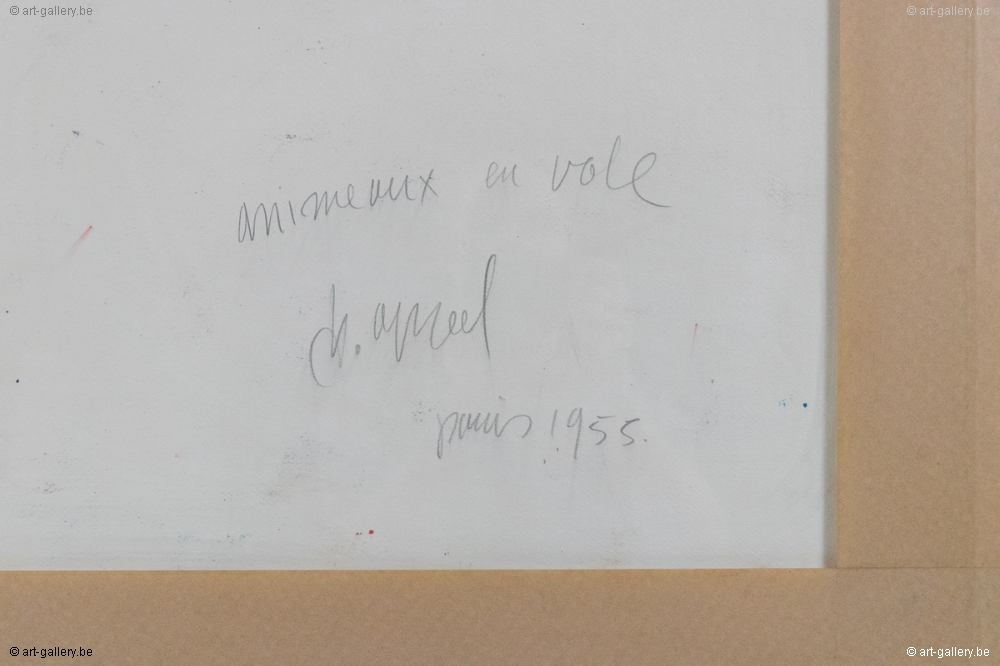 © art-gallery.be © art-gallery.be
animeaux en vole
ck. appel
paris 1955.
© art-gallery.be © art-gallery.be